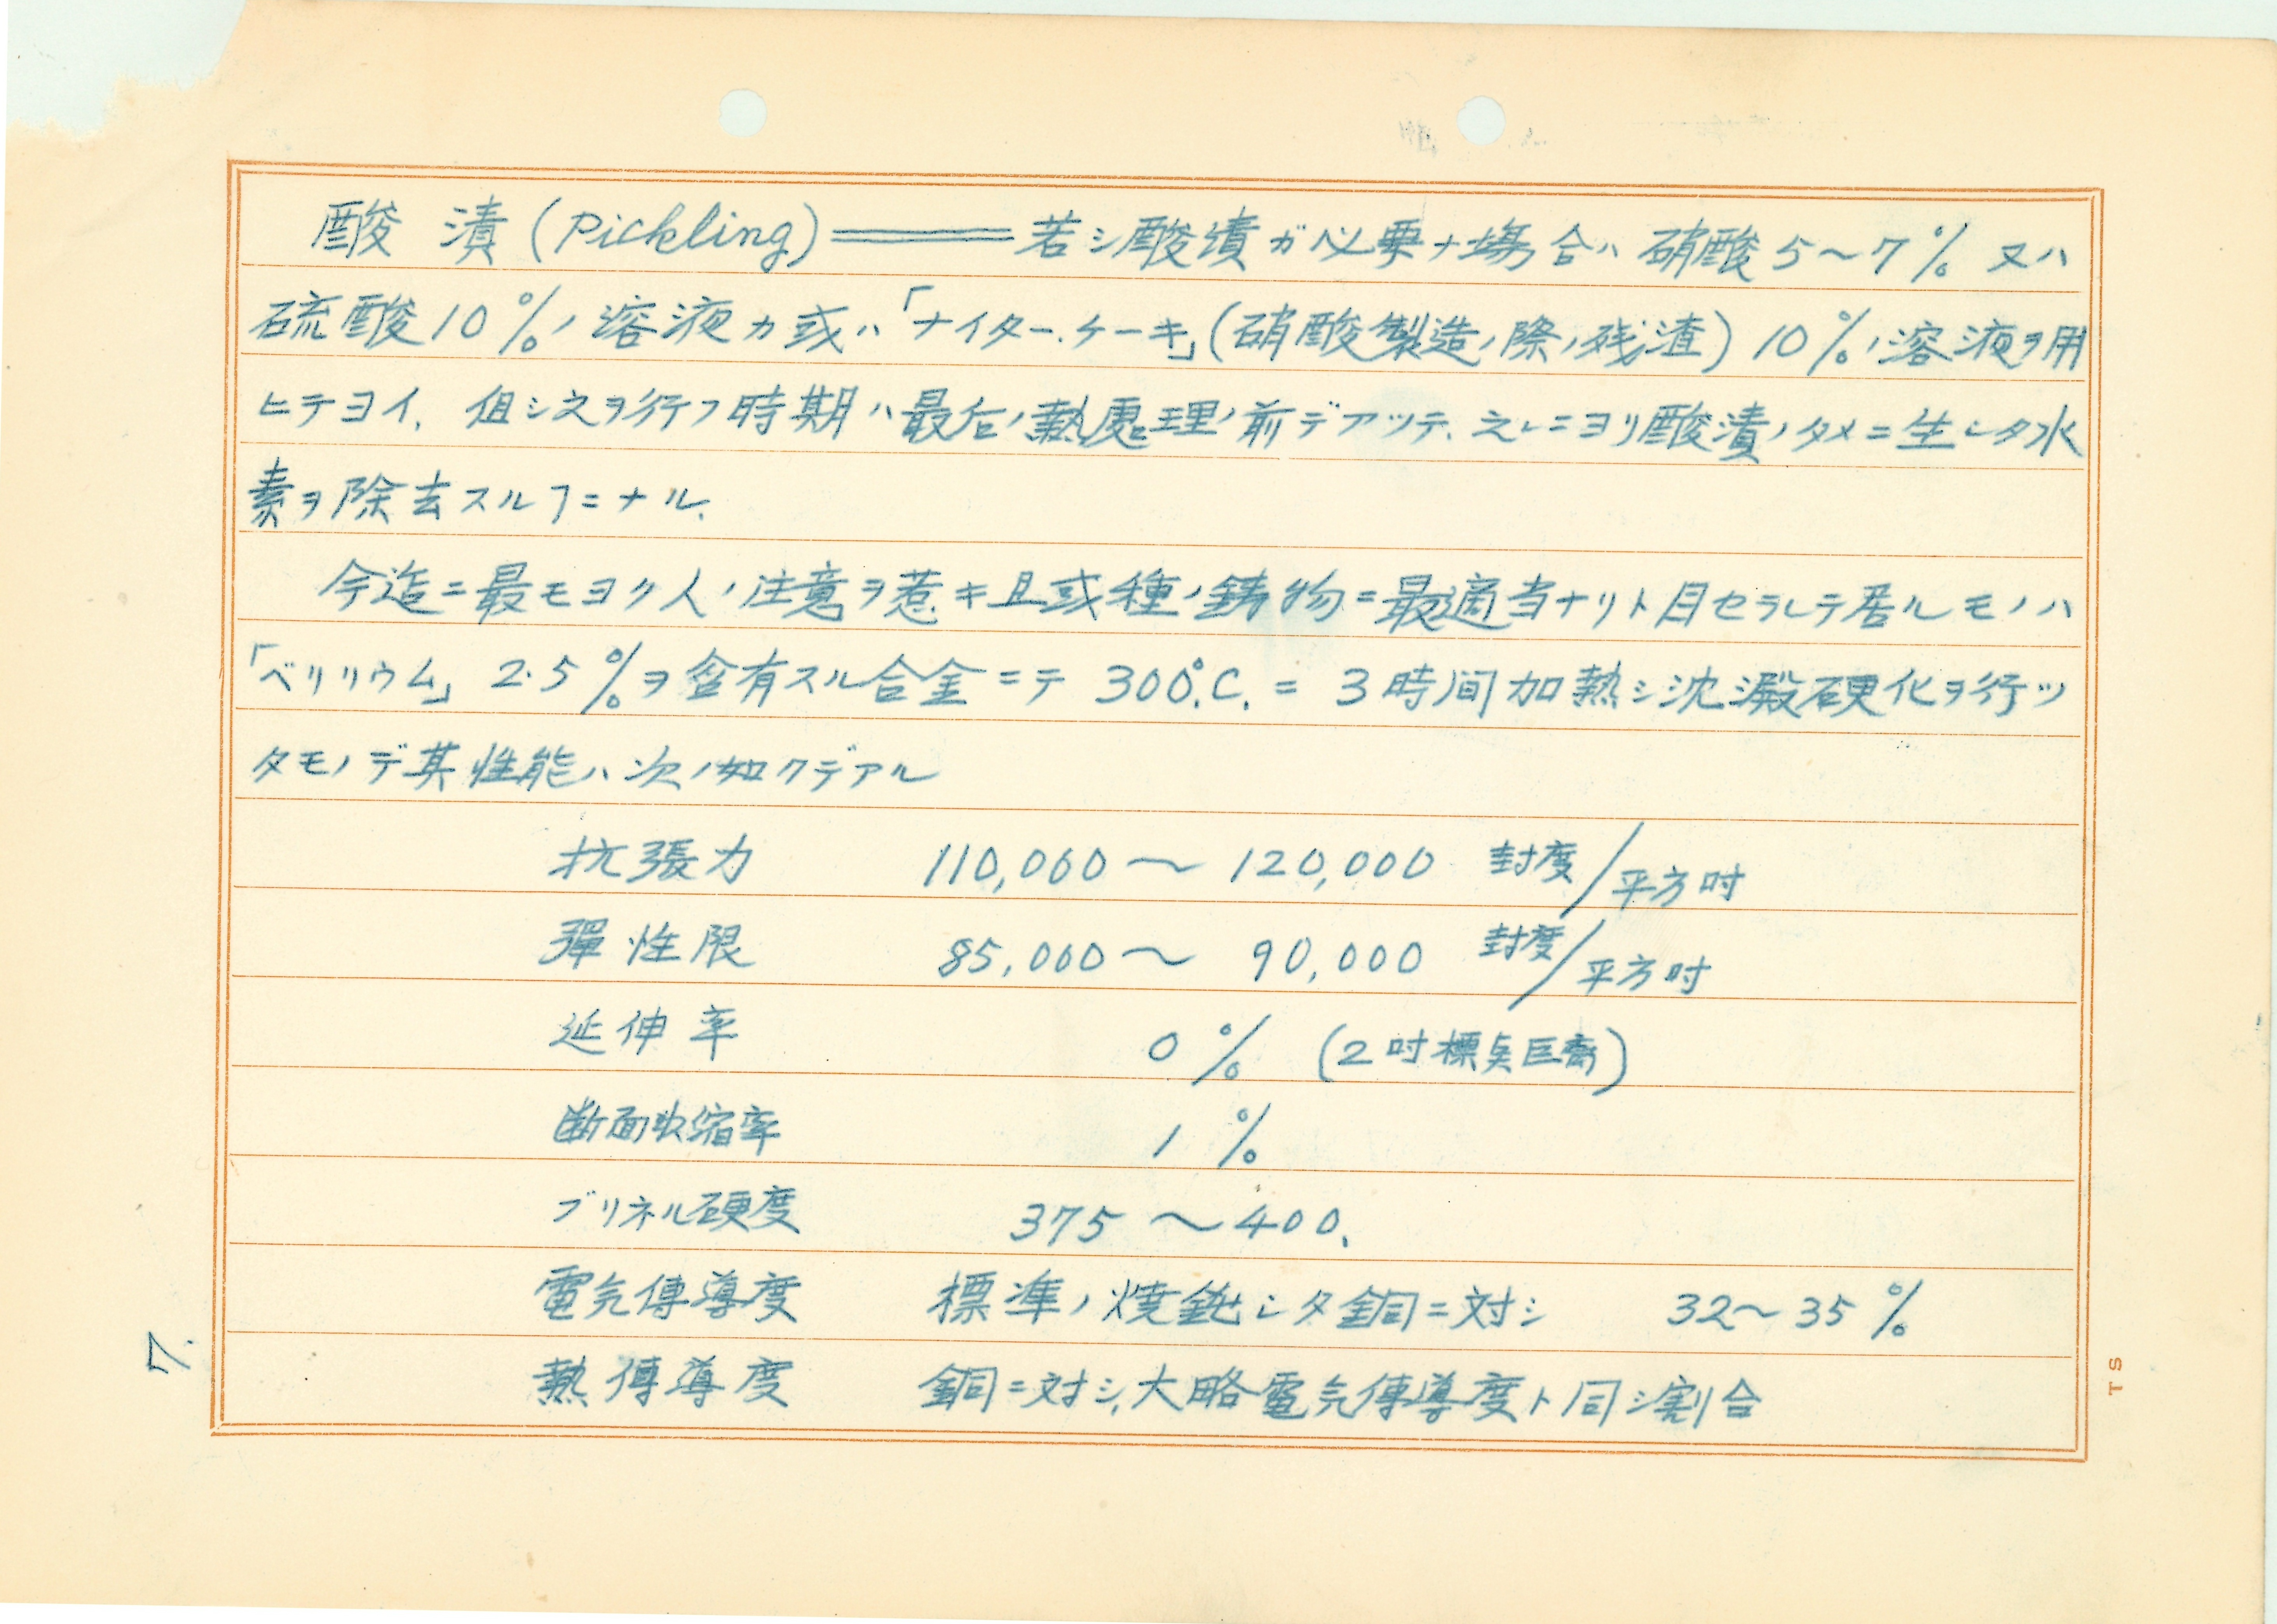 酸漬(Pickling)══若シ酸漬ガ必要ナ場合ハ硝酸5～7％又ハ
硫酸10％ノ溶液カ或ハ「ナイター.ケーキ」(硝酸製造ノ際ノ残渣)10％ノ溶液ヲ用
ヒテヨイ. 但シ之ヲ行フ時期ハ最后ノ熱處理ノ前デアツテ. 之レニヨリ酸漬ノタメニ生シタ水
素ヲ除去スルヿニナル.
今迄ニ最モヨク人ノ注意ヲ惹キ且或種ノ鋳物ニ最適当ナリト目セラレテ居ルモノハ
「ベリリウム」2.5％ヲ含有スル合金ニテ 300°.C. ニ 3時間加熱シ沈澱硬化ヲ行ッ
タモノデ其性能ハ次ノ如クデアル
抗張力 110,000～120,000 封度/平方吋
彈性限 85,000～90,000 封度/平方吋
延伸率 0％ (2吋標点距離)
断面収縮率 1％
ブリネル硬度 375～400.
電気傳導度 標準ノ焼鈍シタ銅ニ対シ 32～35％
熱傳導度 銅ニ対シ,大略電気傳導度ト同シ割合
7.
TS